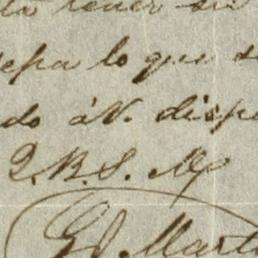 tener su
sepa lo que s
do á V. disp
Q.B.S.M.
Gl Mart